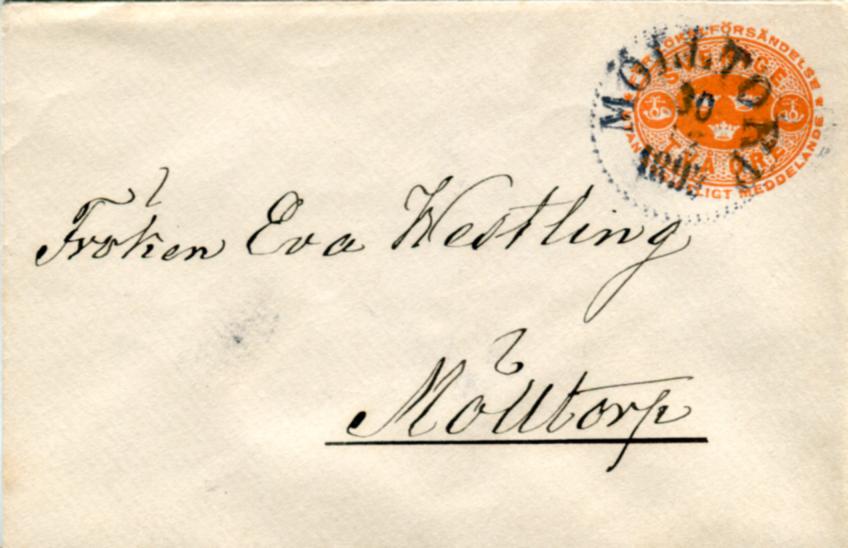 LOKALFÖRSÄNDELSE
SVERIGE
TVÅ ÖRE
LIGT MEDDELANDE
MÖLLTORP
30
Fröken Eva Westling
Mölltorp